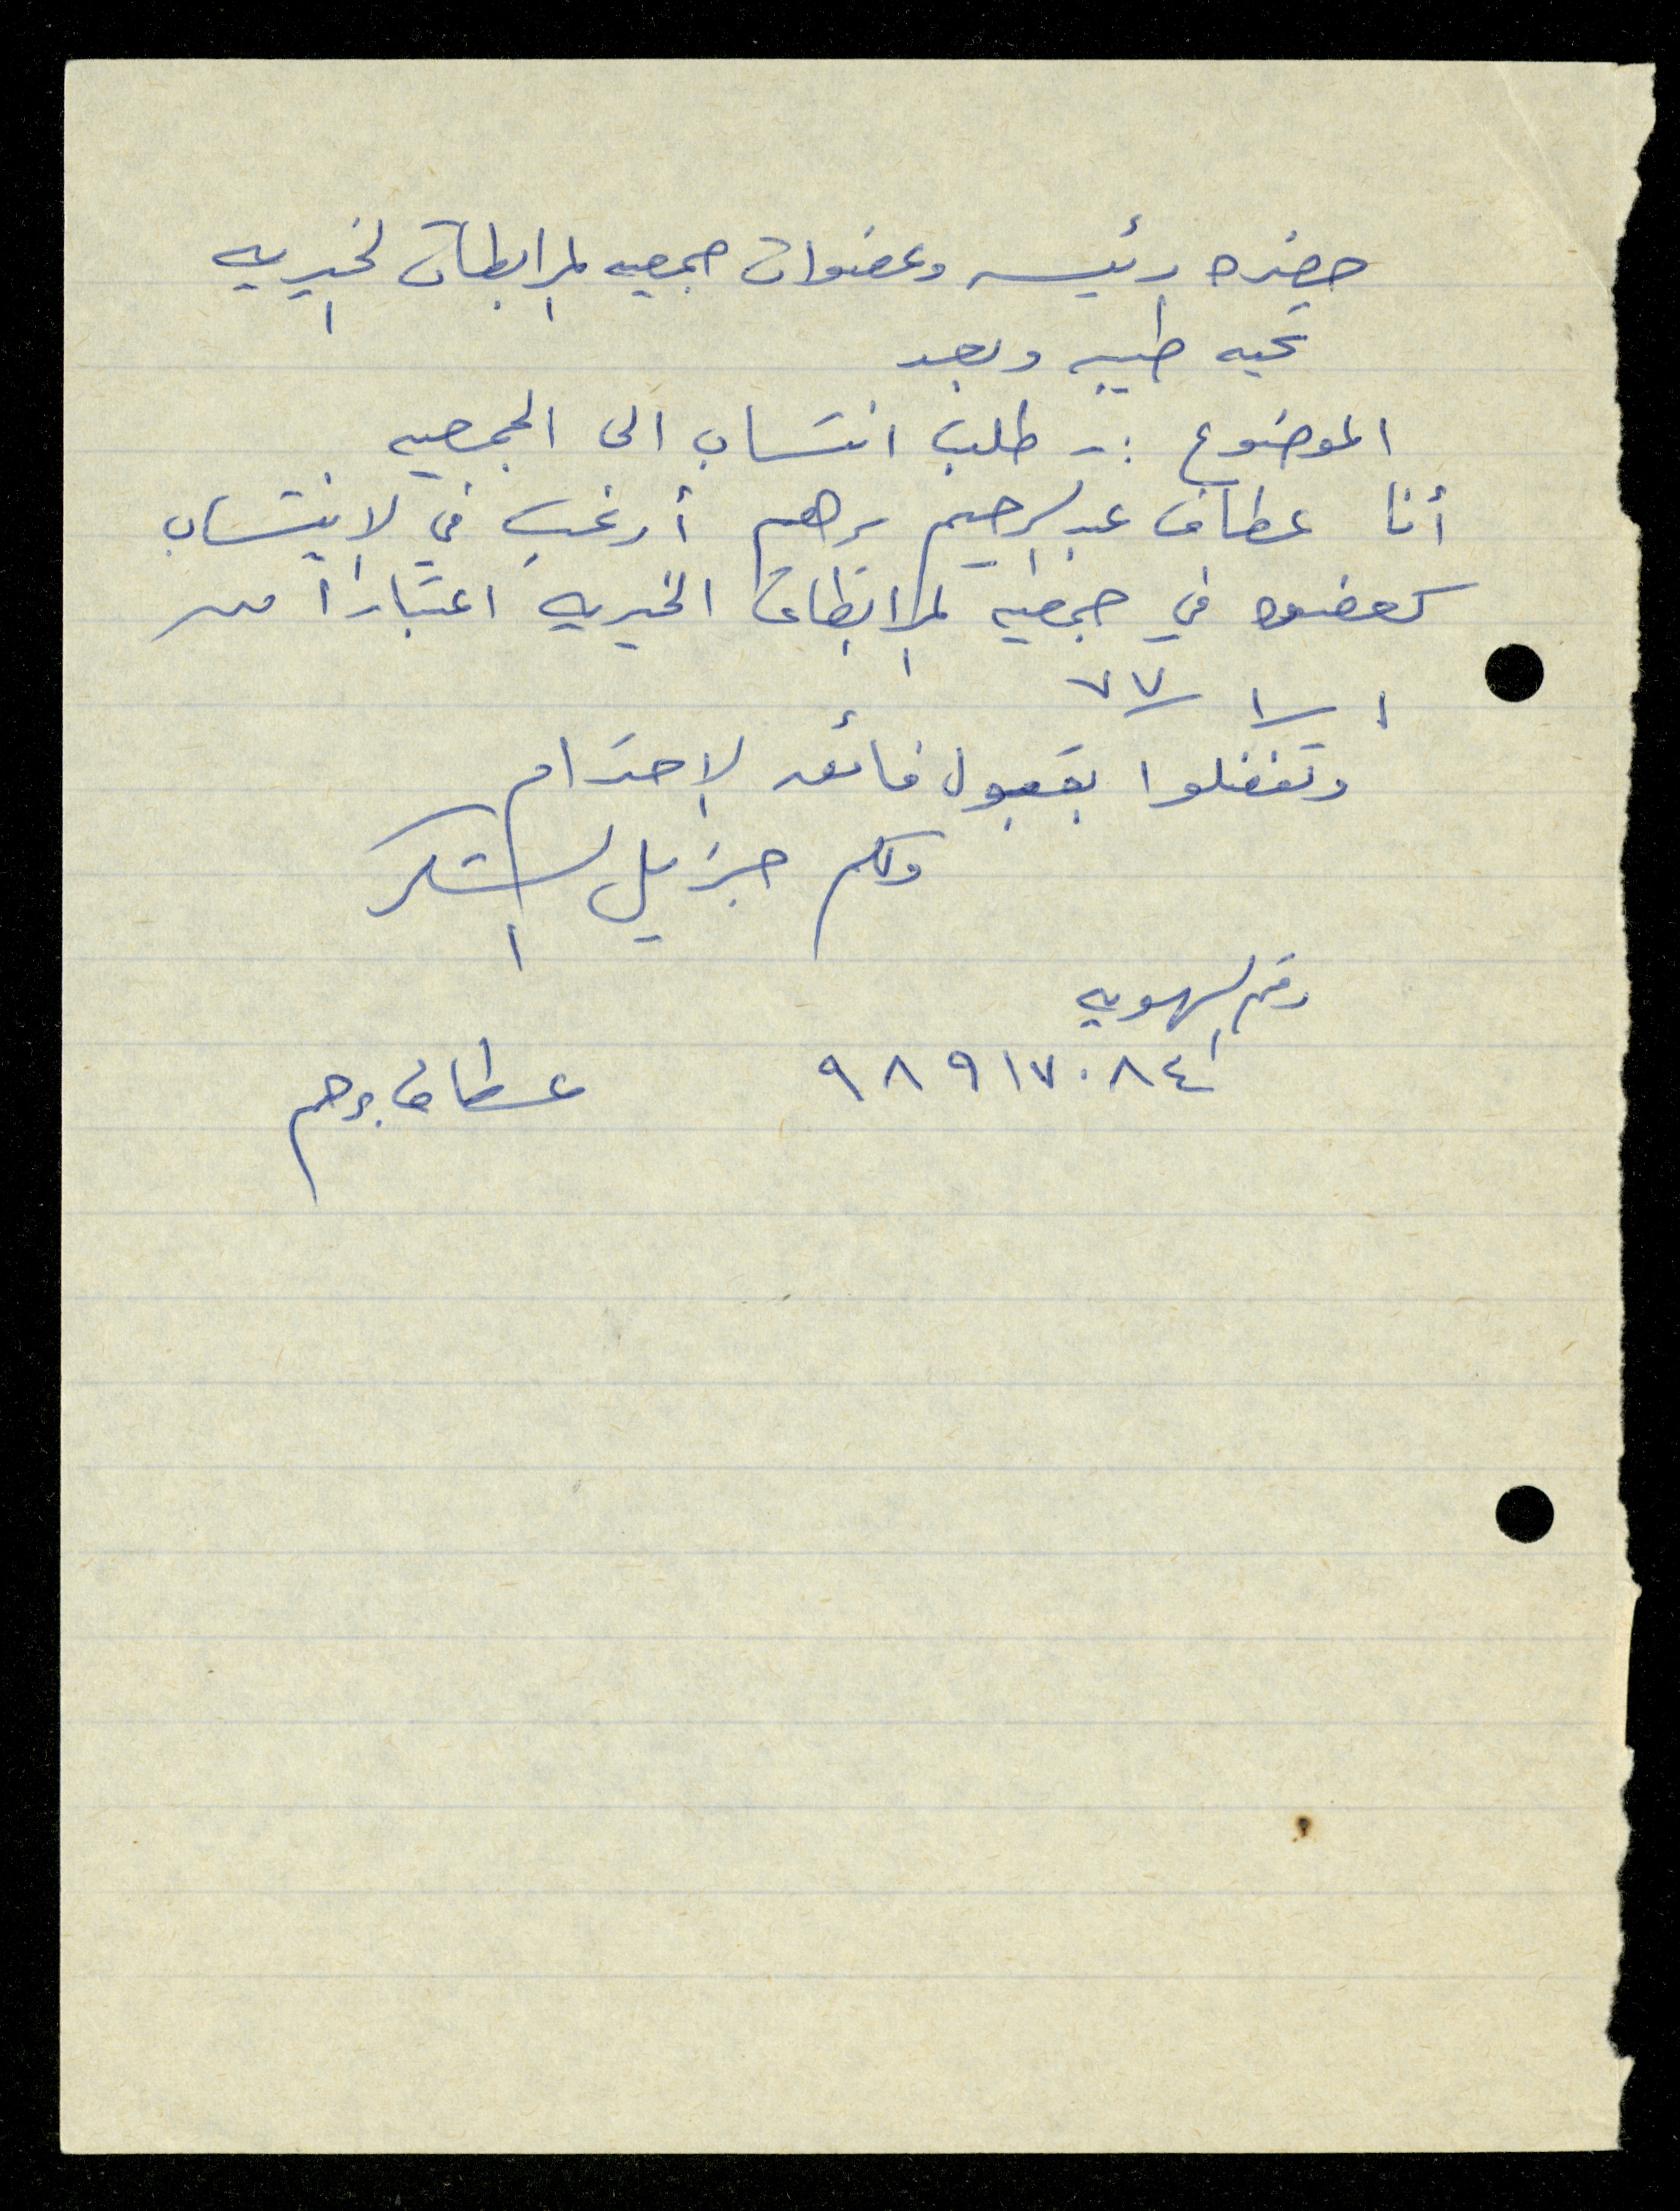 حضره رئيسه وعضوات جمعيه المرابطات الخيريه
تحيه طيبه وبعد
الموضوع :- طلب انتساب الى الجمعيه
أنا عطاف عبد الرحيم برهم أرغب في الانتساب
كعضوه في جمعيه المرابطات الخيريه اعتبارا من
١/١/٧٧
وتفضلوا بقبول فائق الاحترام
ولكم جزيل الشكر
رقم الهويه
٩٨٩١٧٠٨٤ عطاف برهم